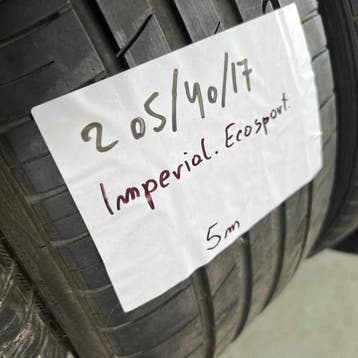 205/40/17
Imperial. Ecosport.
5m